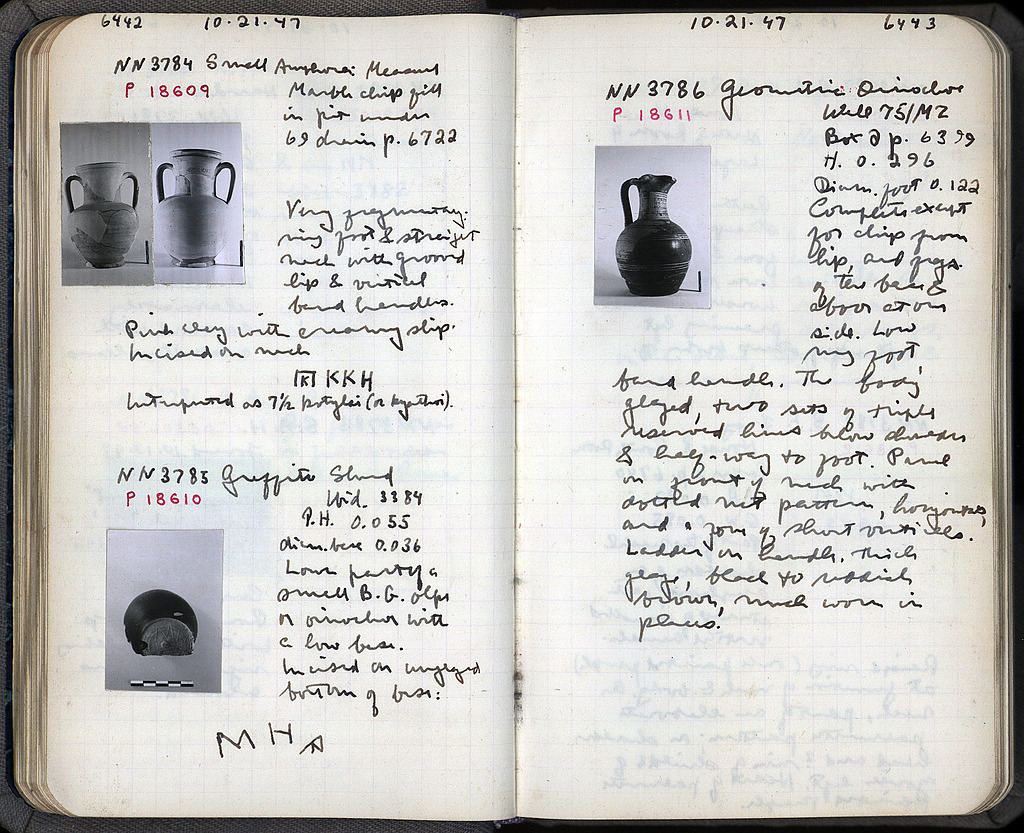 6442 10·21·47
NN3784 Small Amphora Measure
P 18609
Marble chip fill
in pit under
69 drain p. 6722
Very fragmentary.
ring foot & straight
neck with grooved
lip & vertical
band handles.
Pink clay with creamy slip.
Incised on neck
KKH
Interpreted as 7½ kotylai (or kyathoi).
NN3785 Graffito Sherd
P 18610
Ibid. 3384
P.H. 0.055
diam. base 0.036
Lower part of a
small B.G. olpe
or oinochoe with
a low base.
Incised on unglazed
bottom of base:
M H A
10·21·47 6443
NN3786 Geometric Oinochoe
P 18611
Well 75/MZ
Box p. 6399
H. 0.296
Diam. foot 0.122
Complete except
for chip from
lip, and frgs.
of the base &
above at one
side. Low
ring foot
band handle. The body
glazed, two sets of triple
reserved lines below shoulder
& half-way to foot. Panel
on front of neck with
dotted net pattern, horizontals,
and a zone of short verticals.
Ladder on handle. Thick
glaze, black to reddish
brown, much worn in
places.